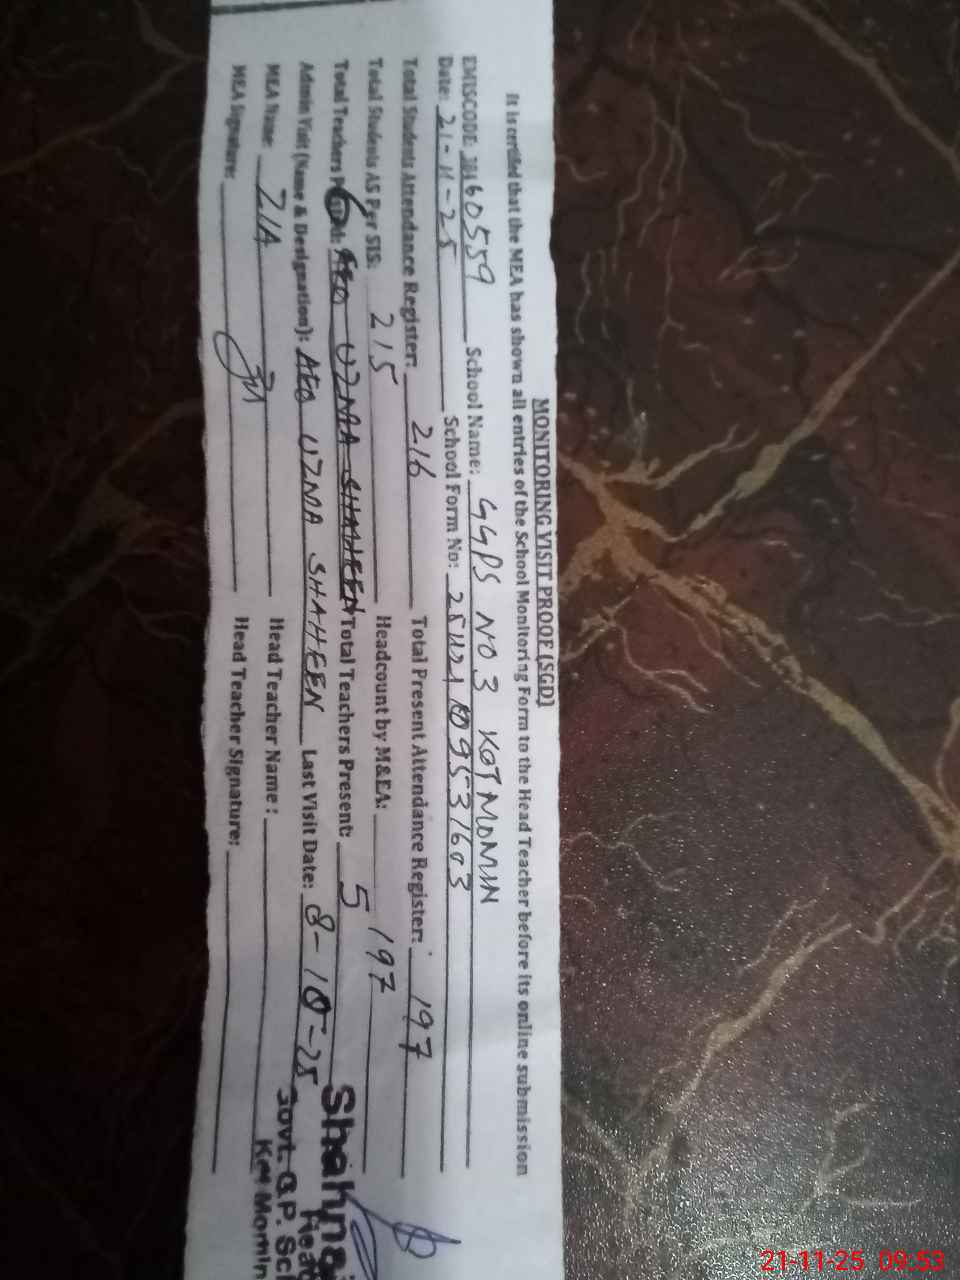 MONITORING VISIT PROOF [SGD]
It is certified that the MEA has shown all entries of the School Monitoring Form to the Head Teacher before its online submission
EMISCODE: 38460559 School Name: GGPS NO 3 KOT MOMIN
Date: 21-11-25 School Form No:
Total Students Attendance Register: 216 Total Present Attendance Register: 197
Total Students AS Per SIS: 215 Headcount by M&EA: 197
Total Teachers Posted: 6 AEO UZMA SHAHEEN Total Teachers Present: 5
Admin Visit (Name & Designation): AEO UZMA SHAHEEN Last Visit Date: 8-10-25
MEA Name: ZIA Head Teacher Name:
MEA Signature: Head Teacher Signature:
Shahna
Head
Govt. G.P. Sch
Kot Momin
21-11-25 09:53